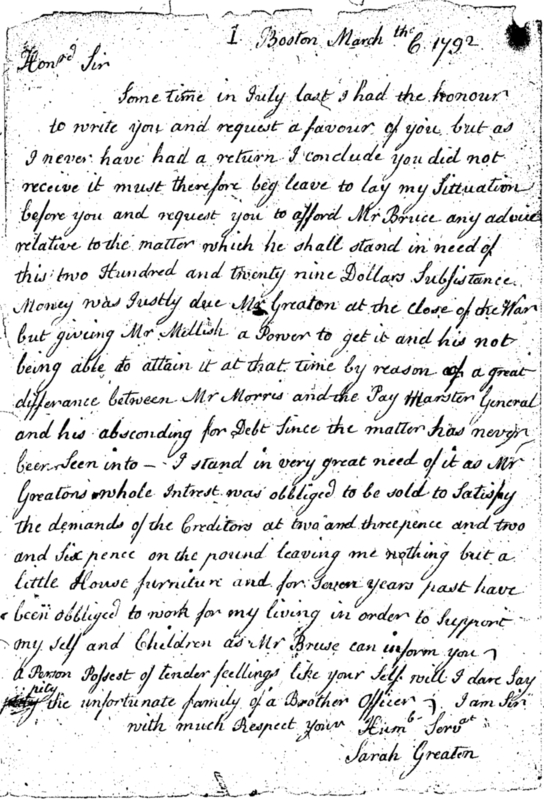 I Boston March the 6. 1792
Honrd Sir
Some time in July last I had the honour
to write you and request a favour of you but as
I never have had a return I conclude you did not
receive it must therefore beg leave to lay my Sittuation
before you and request you to afford Mr Bruce any advice
relative to the matter which he shall stand in need of
this two Hundred and twenty nine Dollars Subsistance
Money was Justly due Mr Greaton at the close of the War
but giveing Mr Mellish a Power to get it and his not
being able to attain it at that time by reason of a great
differance between Mr Morris and the Pay Marster General
and his absconding for Debt Since the matter has never
been Seen into — I stand in very great need of it as Mr
Greatons whole Intrest was obbliged to be sold to Satisfy
the demands of the Creditors at two and threepence and two
and Six pence on the pound leaving me nothing but a
little House furniture and for Seven years past have
been obbliged to work for my living in order to Support
my self and Children as Mr Bruse can inform you
a Person Possest of tender feellings like your Self will I dare Say
pity
the unfortunate family of a Brother Officer I am Sir
with much Respect your Humb Servat
Sarah Greaton